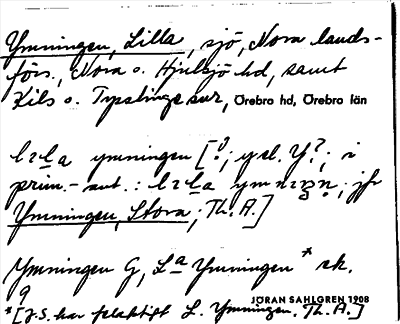 Ymningen, Lilla, sjö, Nora lands-
förs., Nora o. Hjulsjö hd, samt
Kils o. Tysslinge snr, Örebro hd, Örebro län
ymningen [!; y el. Y?; i
prim.-ant.: jfr
Ymningen, Stora; Th. A.]
Ymningen G, La Ymningen* sk.
9
JÖRAN SAHLGREN 1908
*[J.S. har felaktigt L. Ymningen. Th. A.]